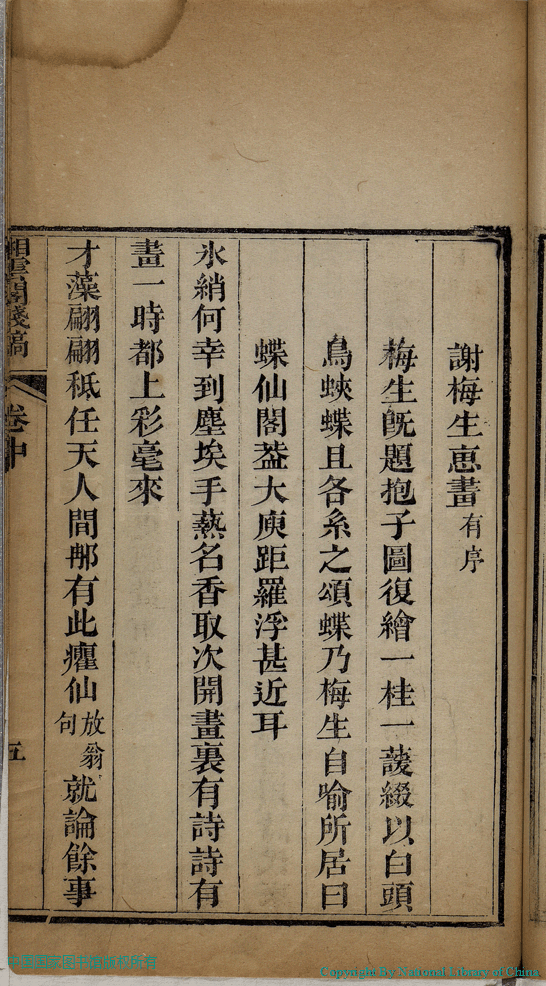 謝梅生惠畫有序
梅生旣題抱子圖復繪一桂一薐綴以白頭
鳥蛺蝶且各系之頌蝶乃梅生自喻所居曰
蝶仙閣葢大庾距羅浮甚近耳
氷綃何幸到塵埃手爇名香取次開畫裏有詩詩有
畫一時都上彩毫來
才藻翩翩秪任天人間那有此癯仙放翁句就論餘事
雲閣殘稿
卷中
五
Copyright By National Library of China